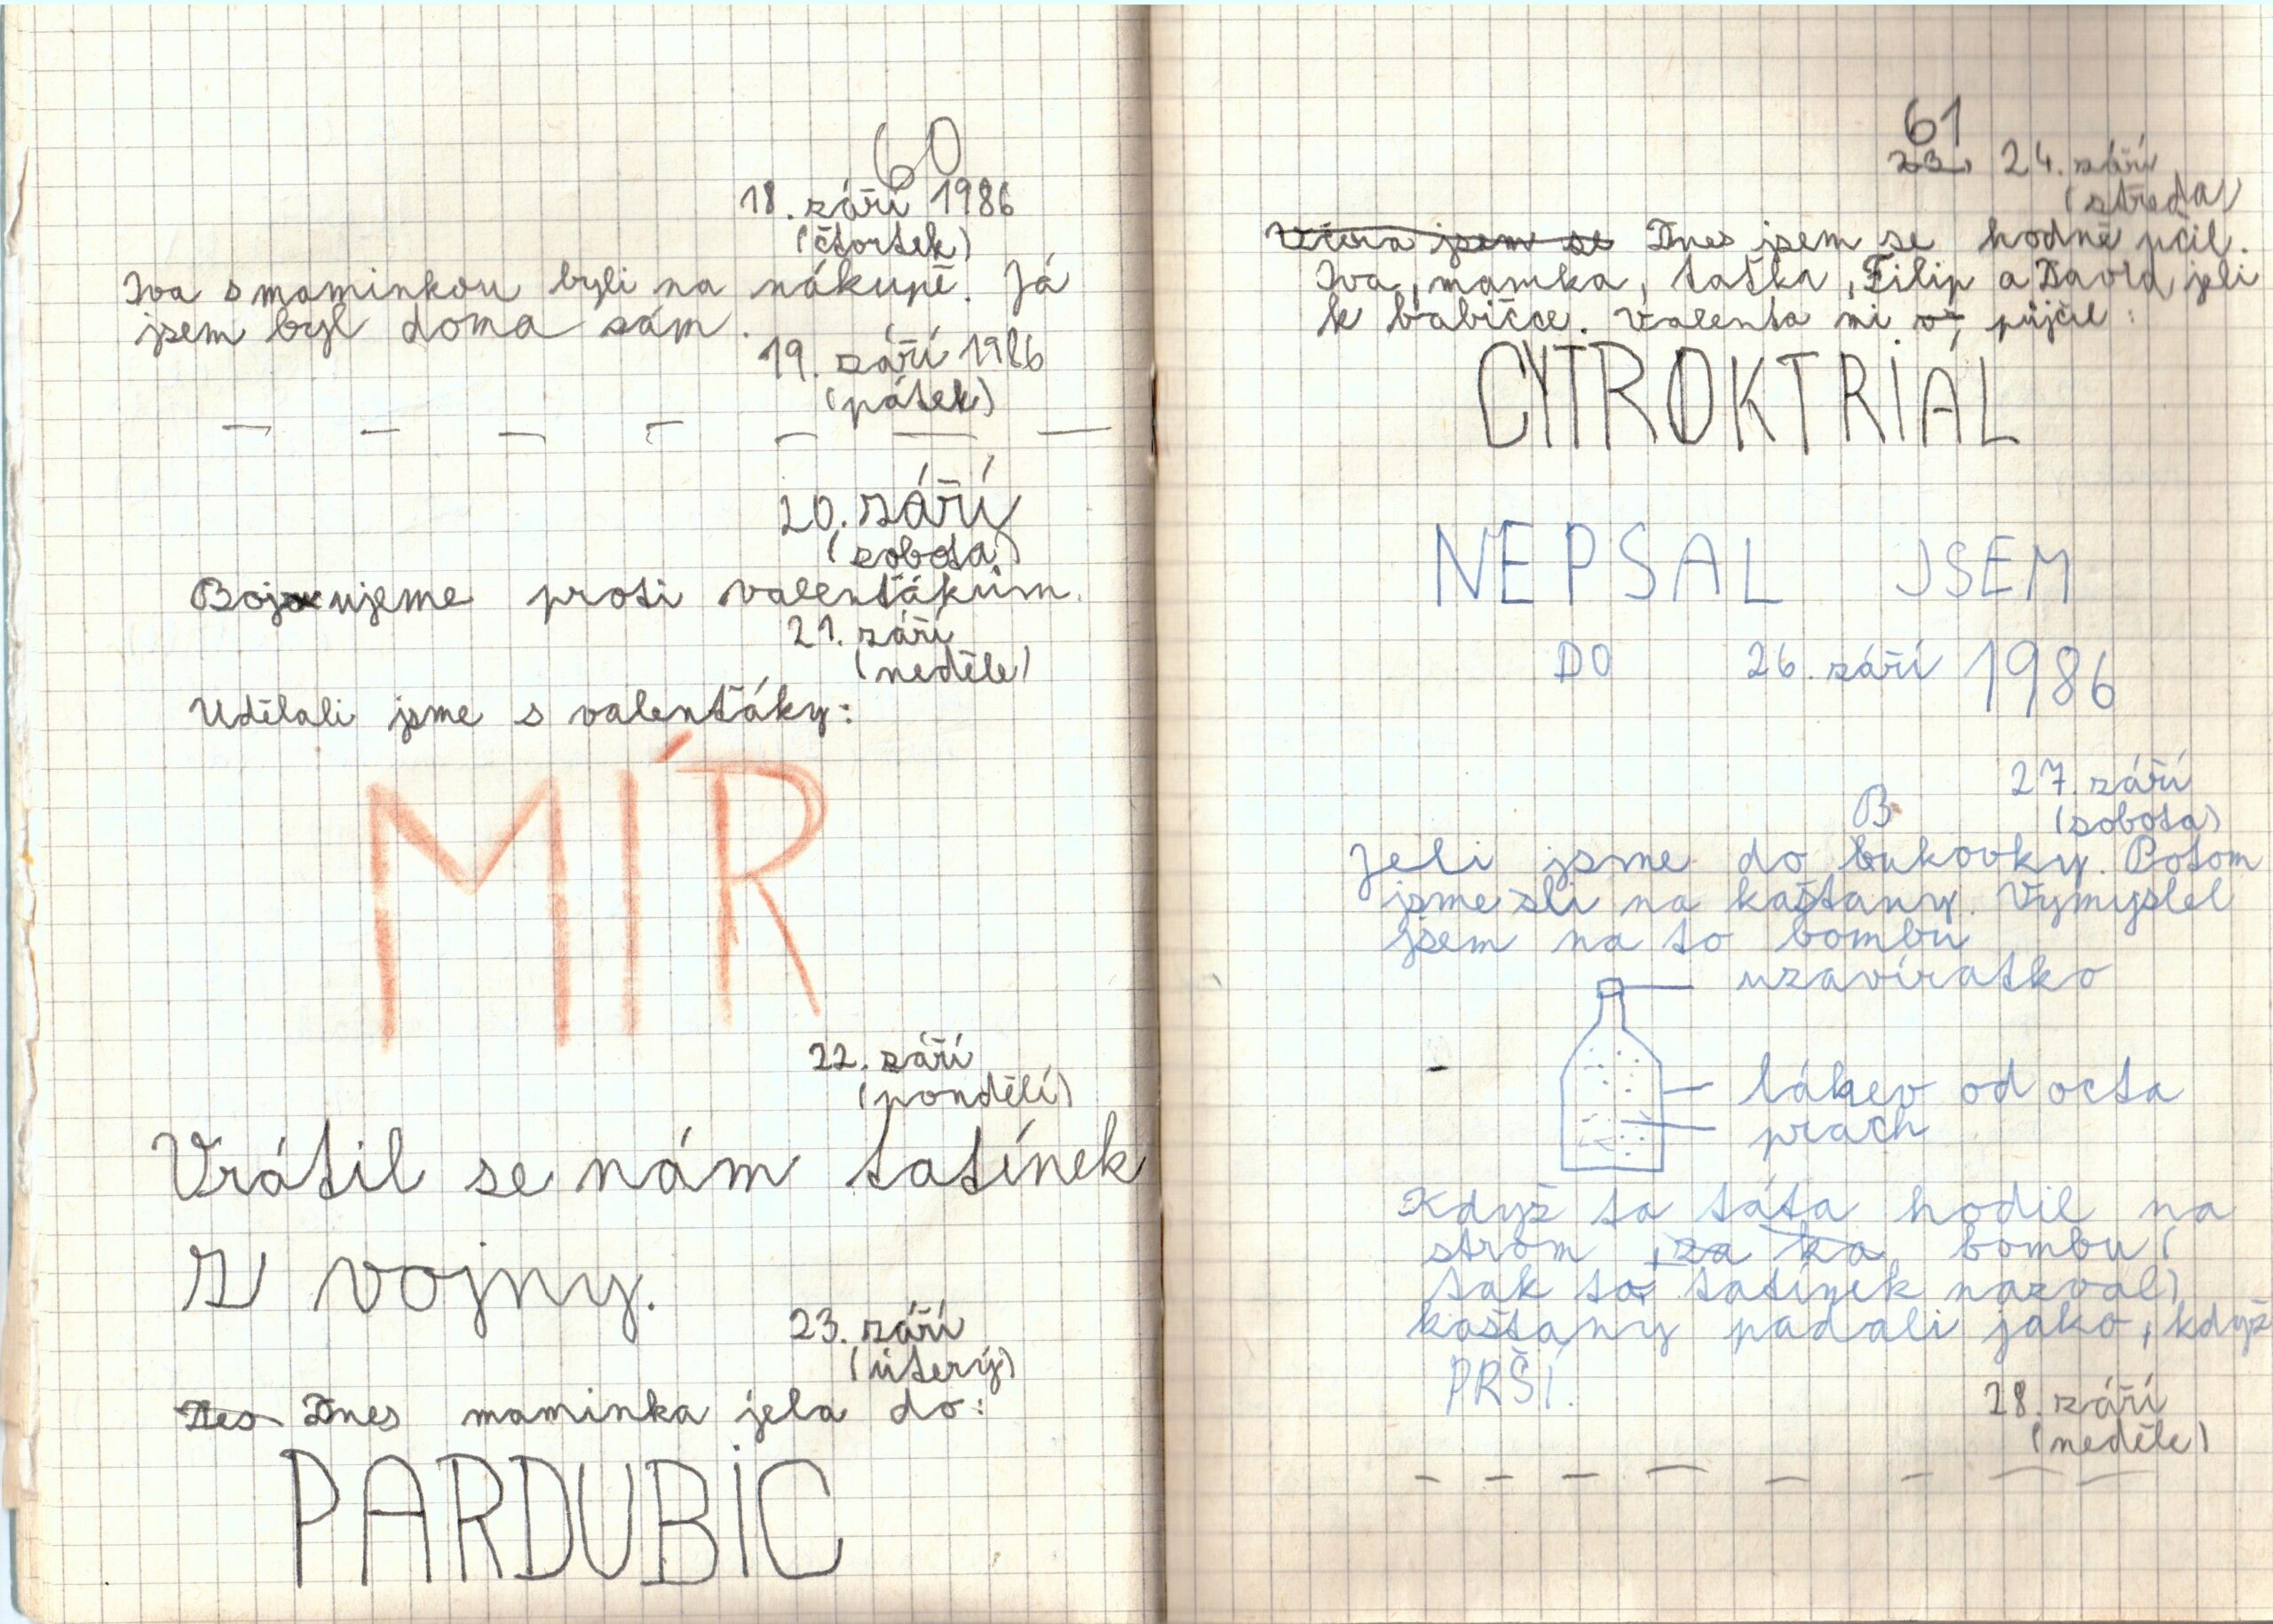 60
18. září 1986
(čtortek)
Iva s maminkou byli na nákupě. Já
jsem byl doma sám.
19. září 1986
(pátek)
— — — — — — —
20. září
(sobota)
Bojujeme proti valenťákům.
21. září
(neděle)
Udělali jsme s valenťáky:
MÍR
22. září
(pondělí)
Vrátil se nám tatínek
z vojny.
23. září
(úterý)
Dnes maminka jela do:
PARDUBIC
61
23. 24. září
(středa)
Včera jsem se Dnes jsem se hodně učil.
Iva, mamka, taťka, Filip a David jeli
k babičce. Valenta mi půjčil:
CYTROKTRIÁL
NEPSAL JSEM
DO 26. září 1986
27. září
(sobota)
B
Jeli jsme do bukovky. Potom
jsme šli na kaštany. Vymyslel
jsem na to bombu
uzavíratko
láhev od octa
prach
Když ta táta hodil na
strom, za ta bombu (
tak to tatínek nazval)
kaštany padali jako, když
PRŠÍ.
28. září
(neděle)
— — — — — — — —